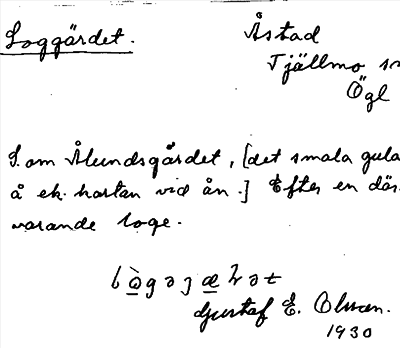 Loggärdet.
Åstad
Tjällmo sn
Ögl
S. om Ålundsgärdet, [det smala gula
å ek. kartan vid ån.] Efter en där
varande loge.
Gustaf E. Olsson.
1930